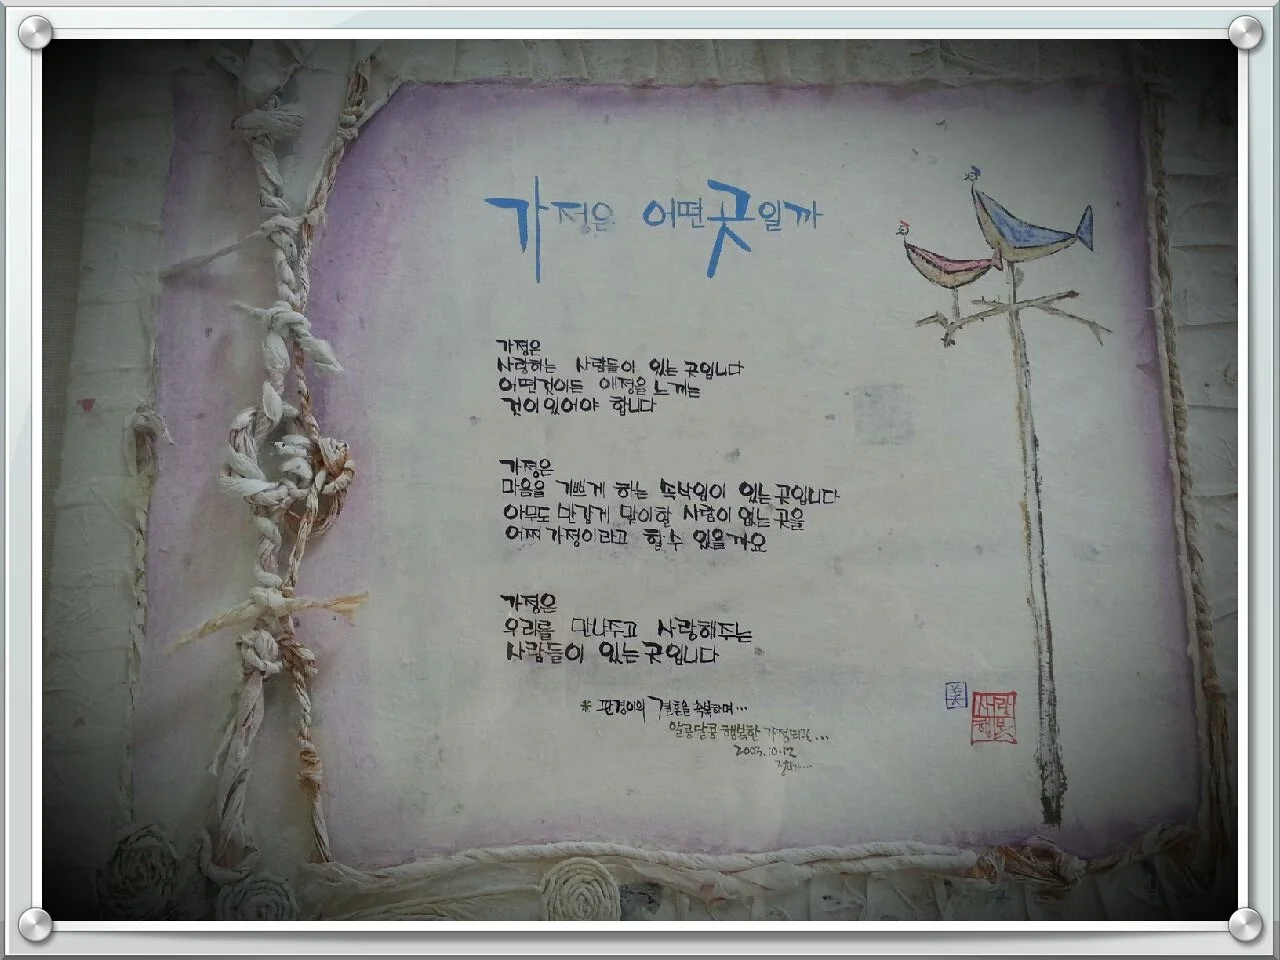 가정은 어떤곳일까
가정은
사랑하는 사람들이 있는 곳입니다
어떤것이든 애정을 느끼는
것이 있어야 합니다
가정은
마음을 기쁘게 하는 속삭임이 있는 곳입니다
아무도 반갑게 맞이할 사람이 없는 곳을
어찌 가정이라고 할 수 있을까요
가정은
우리를 만나주고 사랑해주는
사람들이 있는 곳입니다
* 결혼을 축복하며...
알콩달콩 행복한 가정되길...
2003.10.12
사랑
행복